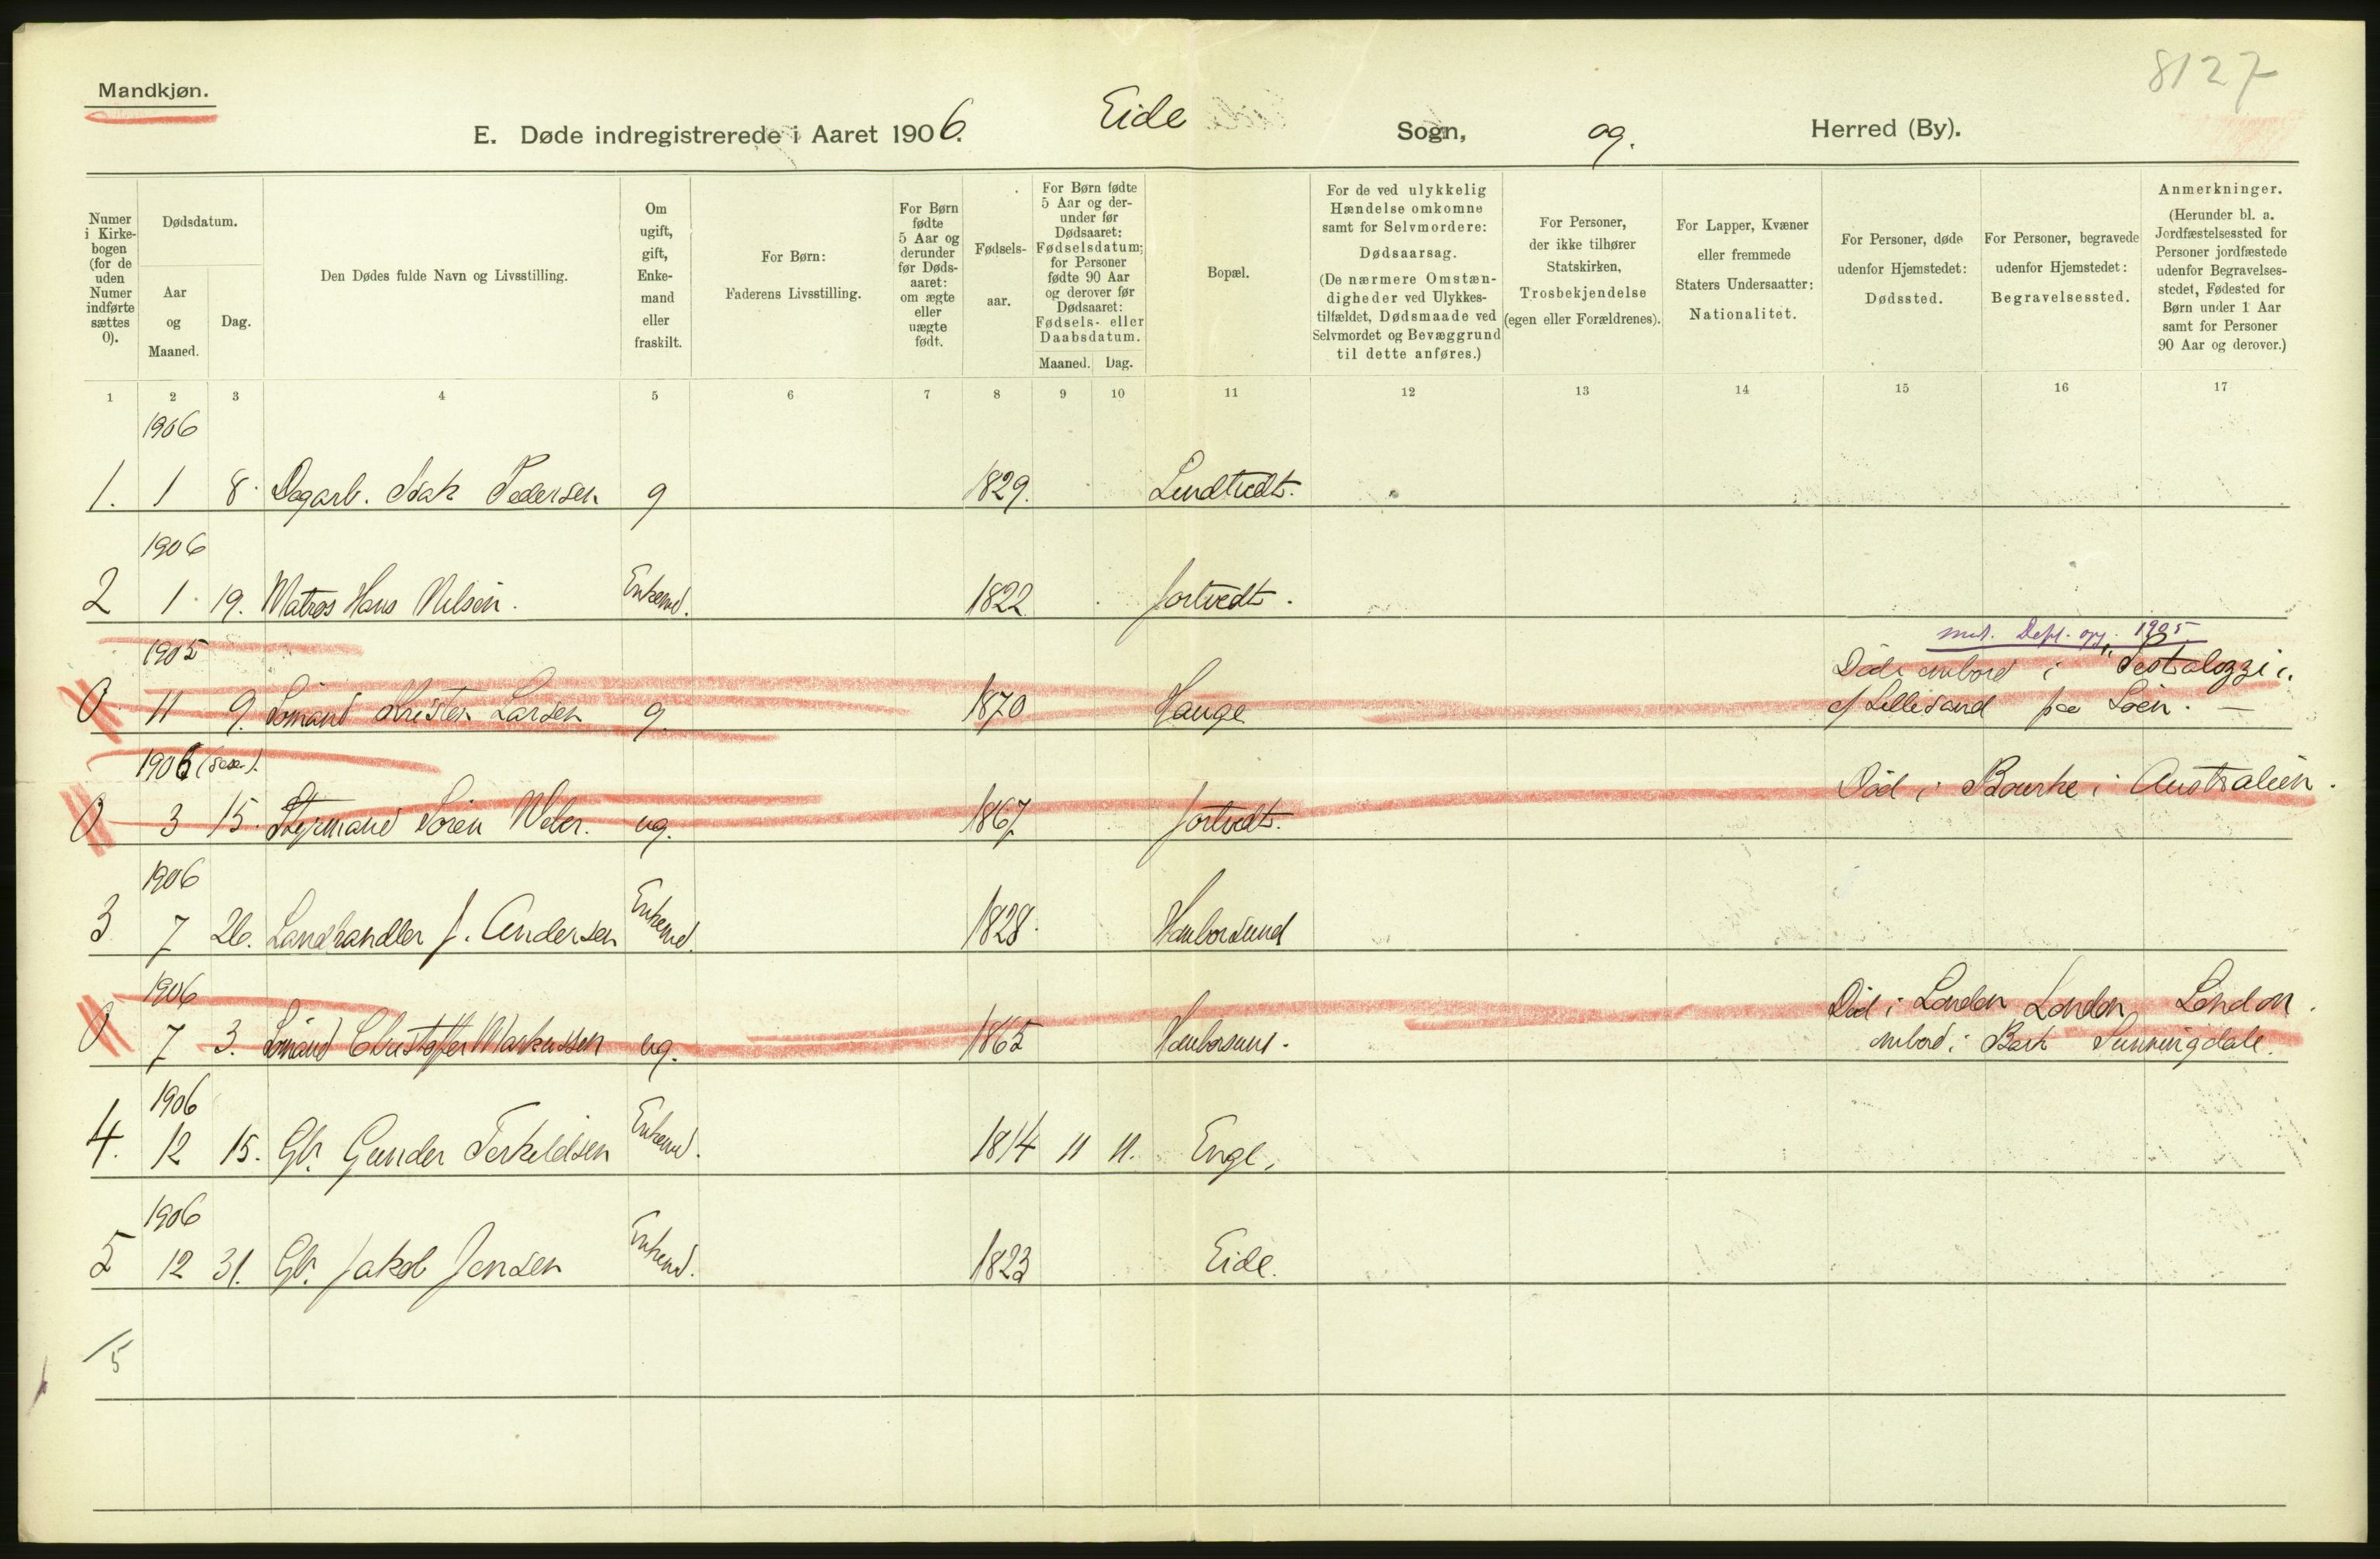 8127
Mandkjøn.
E. Døde indregistrerede i Aaret 1906. Eide Sogn, og. Herred (By).
Numer i Kirkebogen (for de uden Numer indførte sættes 0).
Dødsdatum.
Aar og Maaned.
Dag.
Den Dødes fulde Navn og Livsstilling.
Om ugift, gift, Enkemand eller fraskilt.
For Børn: Faderens Livsstilling.
For Børn fødte 5 Aar og derunder før Dødsaaret: om ægte eller uægte født.
Fødselsaar.
For Børn fødte 5 Aar og derunder før Dødsaaret: Fødselsdatum; for Personer fødte 90 Aar og derover før Dødsaaret: Fødsels- eller Daabsdatum.
Maaned. Dag.
Bopæl.
For de ved ulykkelig Hændelse omkomne samt for Selvmordere: Dødsaarsag. (De nærmere Omstændigheder ved Ulykkestilfældet, Dødsmaade ved Selvmordet og Bevæggrund til dette anføres.)
For Personer, der ikke tilhører Statskirken, Trosbekjendelse (egen eller Forældrenes).
For Lapper, Kvæner eller fremmede Staters Undersaatter: Nationalitet.
For Personer, døde udenfor Hjemstedet: Dødssted.
For Personer, begravede udenfor Hjemstedet: Begravelsessted.
Anmerkninger. (Herunder bl. a. Jordfæstelsessted for Personer jordfæstede udenfor Begravelsesstedet, Fødested for Børn under 1 Aar samt for Personer 90 Aar og derover.)
1 2 3 4 5 6 7 8 9 10 11 12 13 14 15 16 17
1906
1. 1 8. Dagarb. Isak Pedersen g 1829. Lundtvedt.
1906
2 1 19. Matros Hans Nilsen. Enkemd. 1822 Jortvedt.
1905 1905
Død ombord i "Pestalozzi".
0 11 9. Sömand Kristen Larsen g. 1870 Hauge af Lillesand paa Söen. —
1906
Död i Bourke i Australien.
0 3 15. Styrmand Sören Weber. ug. 1867 Jortvedt.
1906
3 7 26. Landhandler J. Andersen Enkemd. 1828. Hamborsund
1906
Död i London London London.
0 7 3. Sömand Christoffer Markussen ug. 1865 Hamborsund. ombord i Bark Sunningdale.
1906
4. 12 15. Gbr. Gunder Terkeldsen Enkemd. 1814 11 11. Enge.
1906
5 12 31. Gbr. Jakob Jensen Enkemd. 1823 Eide.
5